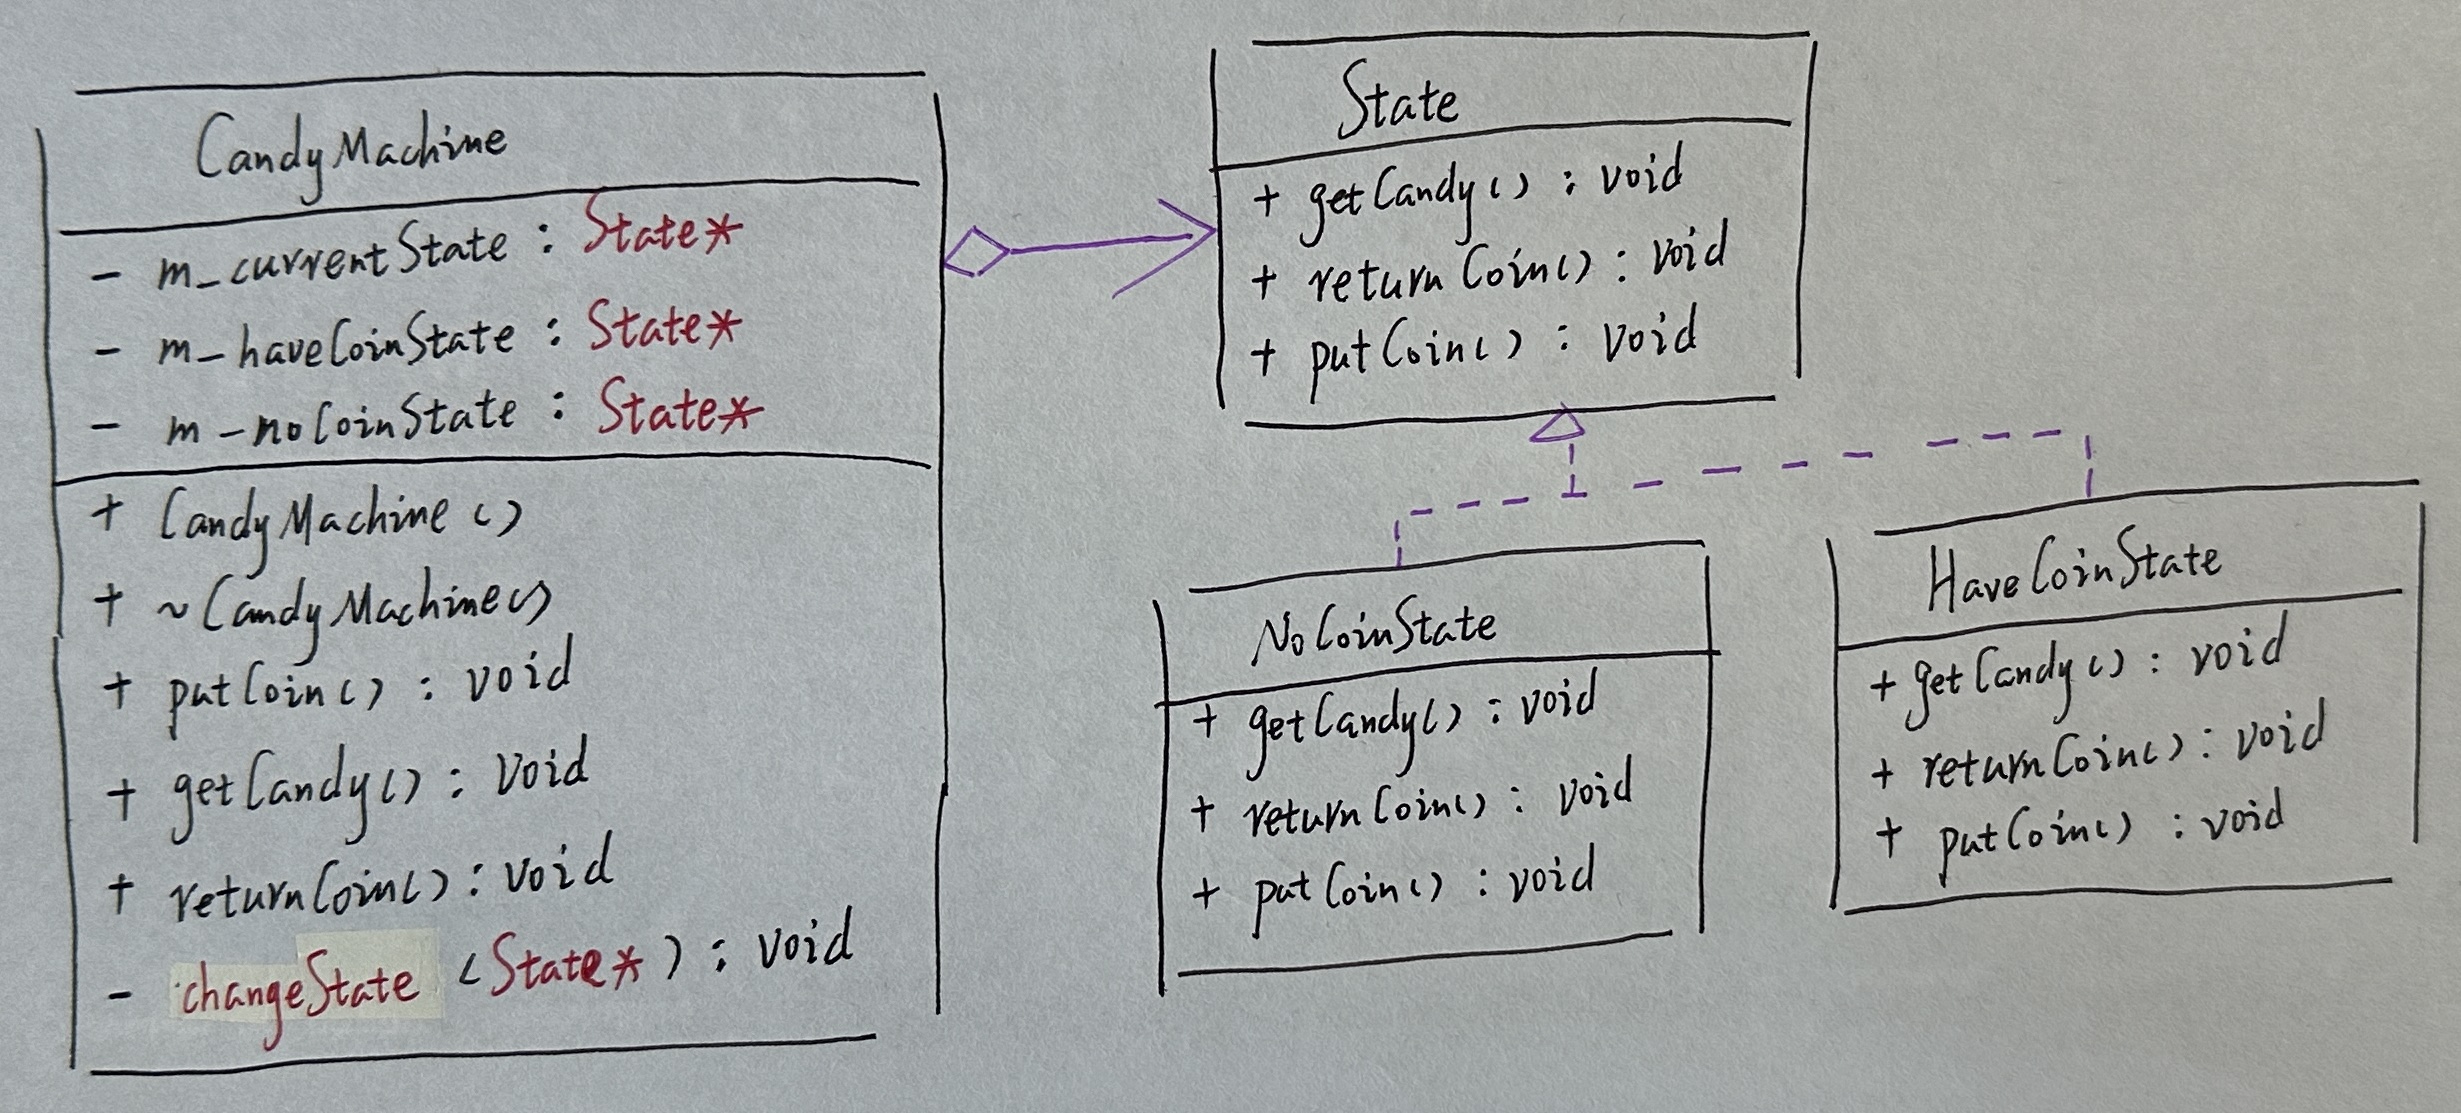 CandyMachine
- m_currentState : State*
- m_haveCoinState : State*
- m_noCoinState : State*
+ CandyMachine()
+ ~CandyMachine()
+ putCoin() : void
+ getCandy() : void
+ returnCoin() : void
- changeState (State*) : void
State
+ getCandy() : void
+ returnCoin() : void
+ putCoin() : void
NoCoinState
+ getCandy() : void
+ returnCoin() : void
+ putCoin() : void
HaveCoinState
+ getCandy() : void
+ returnCoin() : void
+ putCoin() : void